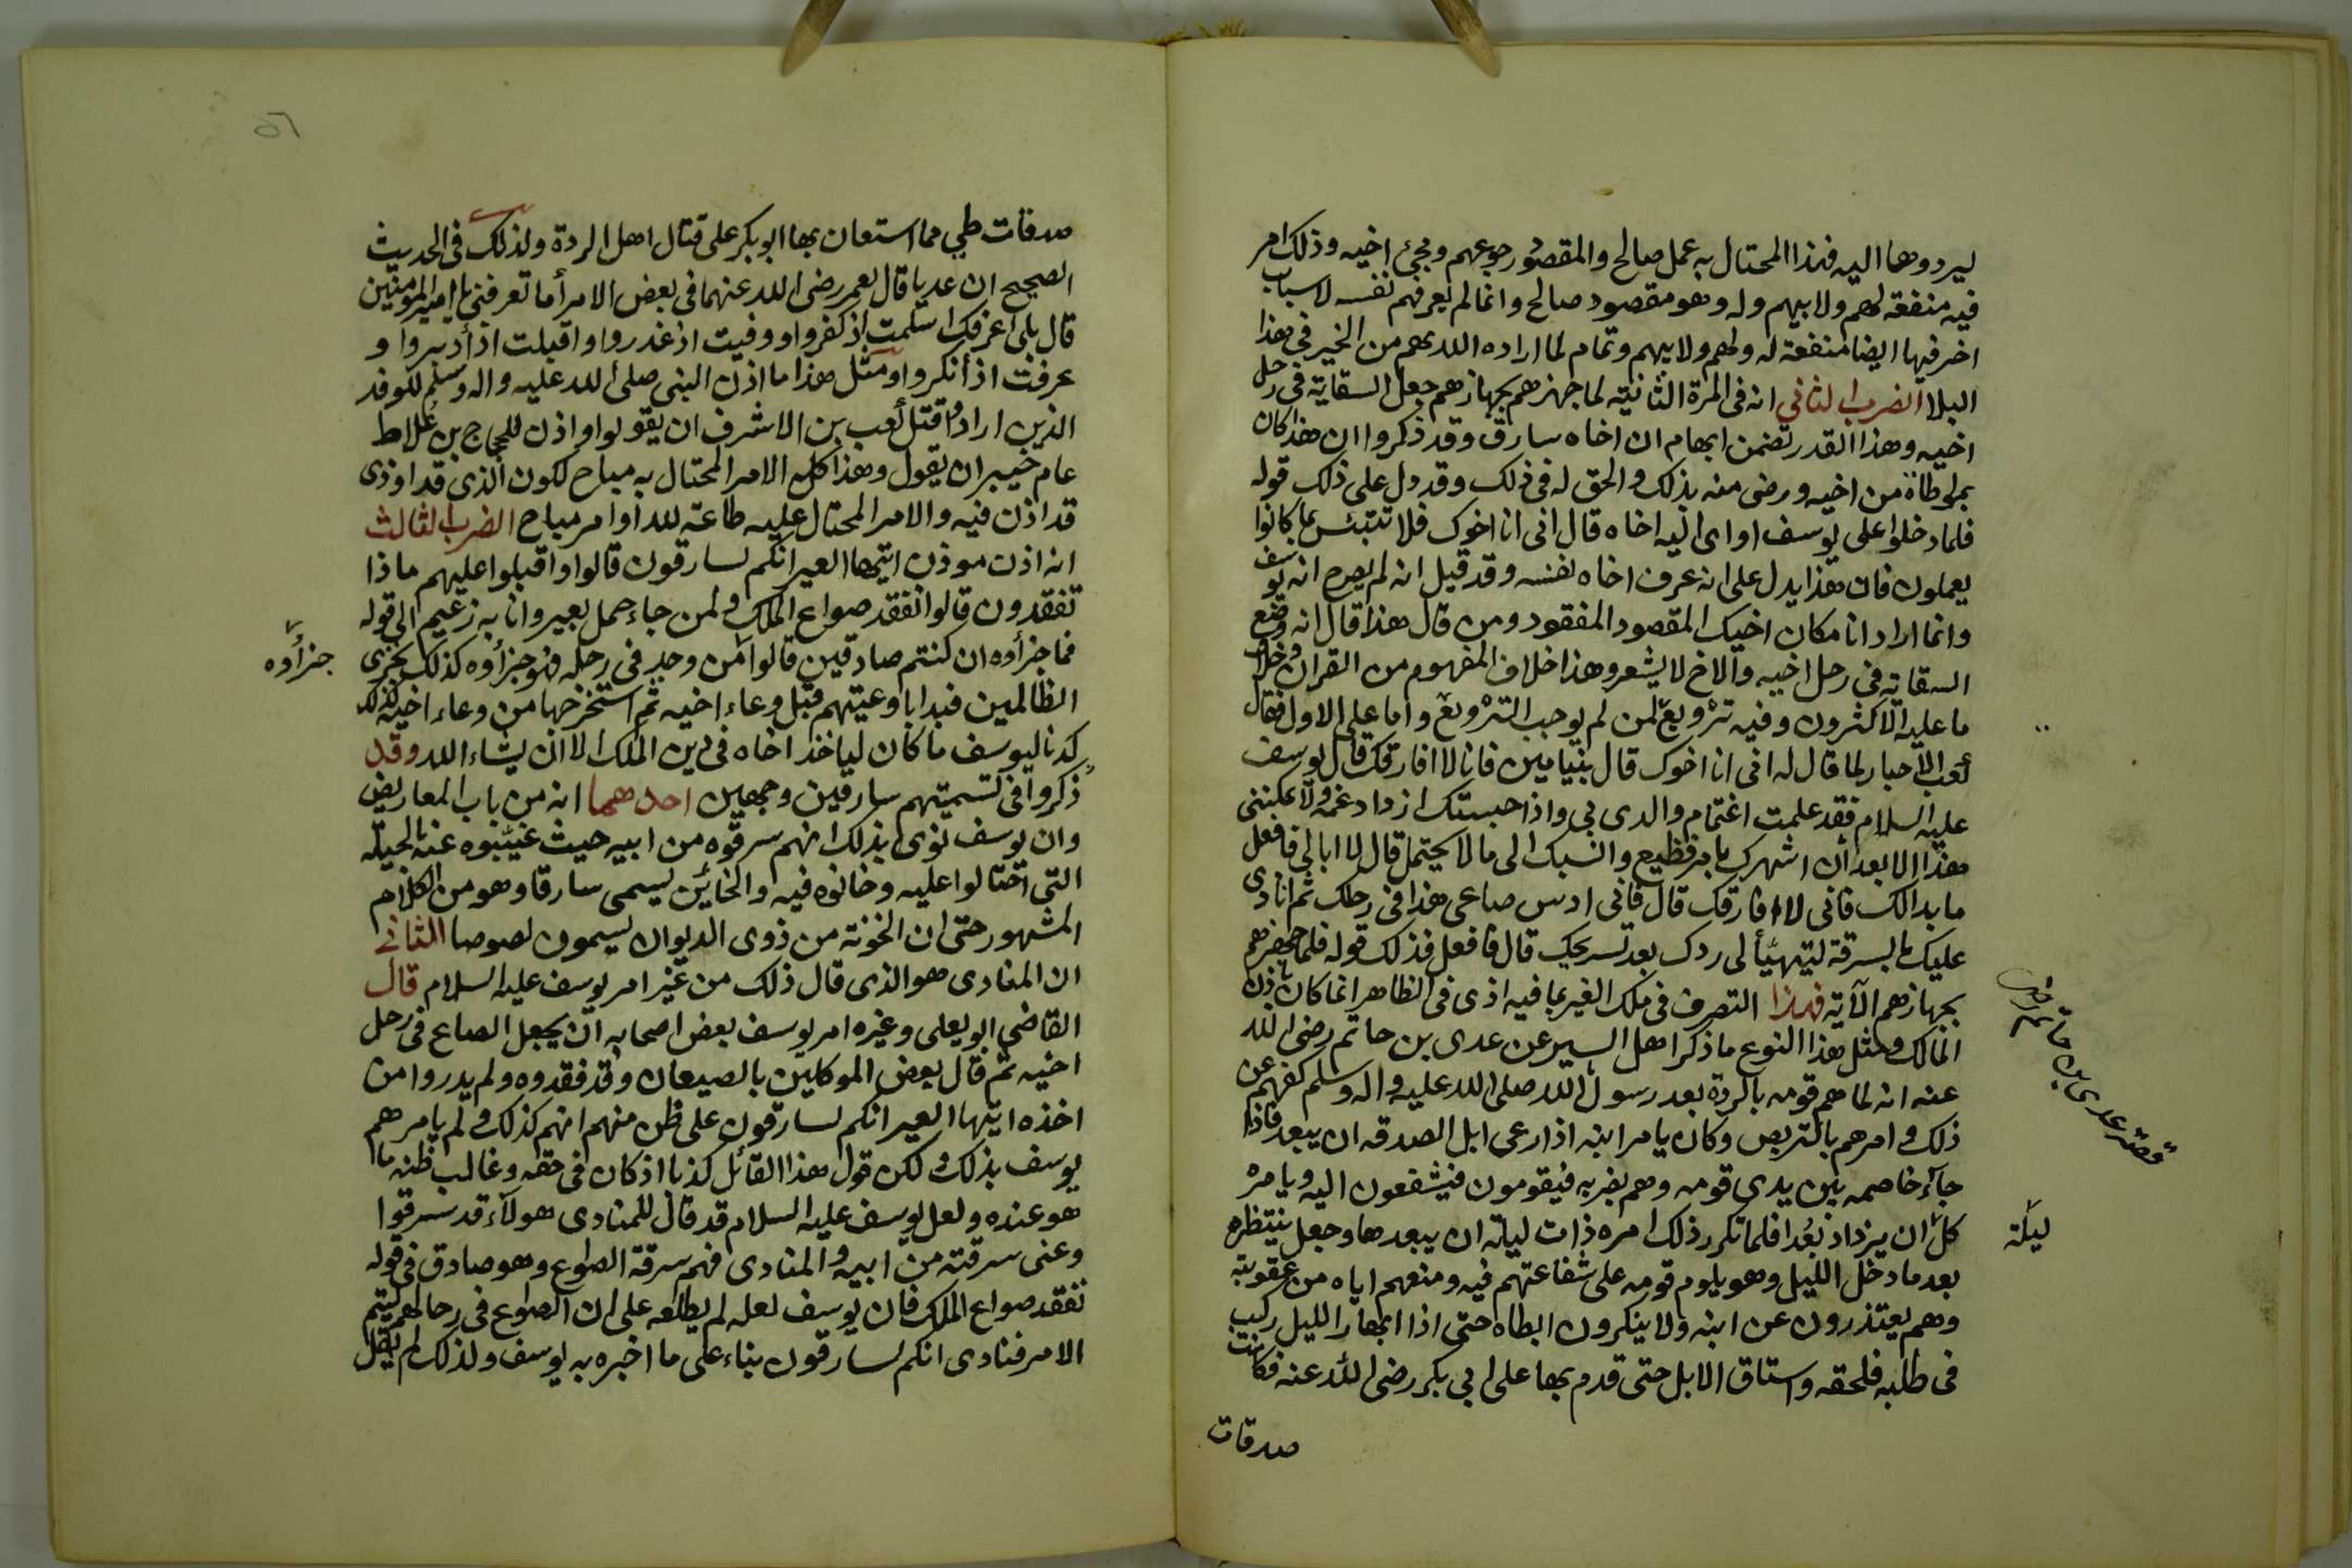 ليردوها اليه فهذا المحتال به عمل صالح والمقصود رجوعهم ومجئ اخيه وذلك امر
فيه منفعة لهم ولابيهم وله وهو مقصود صالح وانما لم يعرفهم نفسه لاسباب
اخر فيها ايضا منفعة له ولهم ولابيهم وتمام لما اراده الله بهم من الخير في هذا
البلا الضرب الثاني انه في المرة الثانية لما جهزهم بجهازهم جعل السقاية في رحل
اخيه وهذا القدر تضمن ابهام ان اخاه سارق وقد ذكروا ان هذا كان
بمواطاة من اخيه ورضى منه بذلك والحق له في ذلك وقد دل على ذلك قوله
فلما دخلوا على يوسف اوى اليه اخاه قال انى انا اخوك فلا تبتئس بما كانوا
يعملون فان هذا يدل على انه عرف اخاه نفسه وقد قيل انه لم يصرح انه يوسف
وانما اراد انا مكان اخيك المقصود المفقود ومن قال هذا قال انه وضع
السقاية في رحل اخيه والاخ لا يشعر وهذا خلاف المفهوم من القران وخلاف
ما عليه الاكثرون وفيه ترويع لمن لم يوجب الترويع واما على الاول فقال
كعب الاحبار لما قال له انى انا اخوك قال بنيامين فانا لا افارقك قال يوسف
عليه السلام فقد علمت اغتمام والدى بي واذا حبستك ازداد غمه ولا يمكننى
هذا الا بعد ان اشهرك بامر فظيع وانسبك الى ما لا يحتمل قال لا ابالى فافعل
ما بدا لك فانى لا افارقك قال فانى ادس صاعى هذا في رحلك ثم انادى
عليك بالسرقة ليتهيأ لى ردك بعد تسريحك قال فافعل فذلك قوله فلما جهزهم
بجهازهم الآية فهذا التصرف في ملك الغير بما فيه اذى في الظاهر انما كان باذن
المالك ومثل هذا النوع ما ذكر اهل السير عن عدى بن حاتم رضى الله
عنه انه لما هم قومه بالردة بعد رسول الله صلى الله عليه واله وسلم كفهم عن
ذلك وامرهم بالتربص وكان يامر ابنه اذا رعى ابل الصدقه ان يبعد فاذا
جآء خاصمه بين يدى قومه وهم بضربه فيقومون فيشفعون اليه ويامره
كل ان يزداد بُعدا فلما تكرر ذلك امره ذات ليلة ان يبعد بها وجعل ينتظره
بعد ما دخل الليل وهو يلوم قومه على شفاعتهم فيه ومنعهم اياه من عقوبته
وهم يعتذرون عن ابنه ولا ينكرون ابطاه حتى اذا ابهار الليل ركب
في طلبه فلحقه واستاق الابل حتى قدم بها على ابي بكر رضى الله عنه فكانت
صدقات
قصة عدى بن حاتم رض
ليلة
صدقات طي مما استعان بها ابو بكر على قتال اهل الردة ولذلك في الحديث
الصحيح ان عديا قال لعمر رضى الله عنهما في بعض الامر أما تعرفني يا امير المومنين
قال بلى اعرفك اسلمت اذ كفروا ووفيت اذ غدروا واقبلت اذ أدبروا و
عرفت اذ أنكروا ومثل هذا ما اذن النبى صلى الله عليه واله وسلم للوفد
الذين ارادوا قتل كعب بن الاشرف ان يقولوا واذن للحجاج بن علاط
عام خيبر ان يقول وهذا كله الامر المحتال به مباح لكون الذى قد اوذى
قد اذن فيه والامر المحتال عليه طاعة لله او امر مباح الضرب الثالث
انه اذن موذن ايتها العير انكم لسارقون قالوا واقبلوا عليهم ماذا
تفقدون قالوا نفقد صواع الملك ولمن جاء حمل بعير وانا به زعيم الى قوله
فما جزأوه ان كنتم صادقين قالوا من وجد في رحله فهو جزأوه كذلك نجزى
الظالمين فبدا باوعيتهم قبل وعاء اخيه ثم استخرجها من وعاء اخيه كذلك
كدنا ليوسف ما كان لياخذ اخاه في دين الملك الا ان يشاء الله وقد
ذكروا في تسميتهم سارقين وجهين احدهما انه من باب المعاريض
وان يوسف نوى بذلك انهم سرقوه من ابيه حيث غيبوه عنه بالحيلة
التى احتالوا عليه وخانوه فيه والخائن يسمى سارقا وهو من الكلام
المشهور حتى ان الخونة من ذوى الديوان يسمون لصوصا الثاني
ان المنادى هو الذى قال ذلك من غير امر يوسف عليه السلام قال
القاضي ابو يعلى وغيره امر يوسف بعض اصحابه ان يجعل الصاع في رحل
اخيه ثم قال بعض الموكلين بالصيعان وقد فقدوه ولم يدروا من
اخذه ايتها العير انكم لسارقون على ظن منهم انهم كذلك ولم يامرهم
يوسف بذلك ولكن قول هذا القائل كذبا اذ كان في حقه وغالب ظنه ما
هو عنده ولعل يوسف عليه السلام قد قال للمنادى هولآء قد سرقوا
وعنى سرقته من ابيه والمنادى فهم سرقة الصواع وهو صادق في قوله
نفقد صواع الملك فان يوسف لعله لم يطلعه على ان الصواع في رحالهم ليتم
الامر فنادى انكم لسارقون بناء على ما اخبره به يوسف ولذلك لم يقل
جزأوه